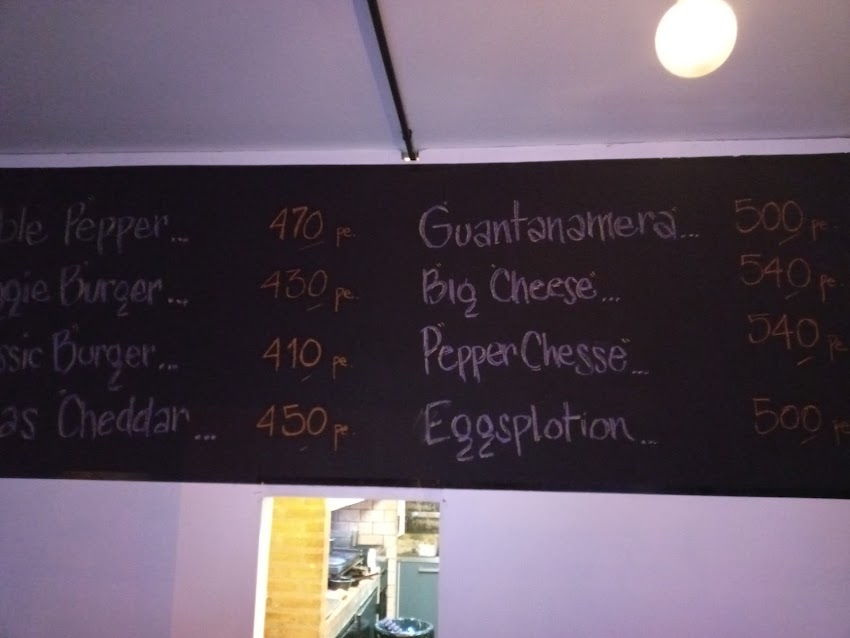 ble Pepper... 470 pe.
gie Burger... 430 pe.
ssic Burger... 410 pe.
as Cheddar... 450 pe.
Guantanamera... 500 pe.
Big Cheese... 540 pe.
Pepper Chesse... 540 pe
Eggsplotion... 500 pe